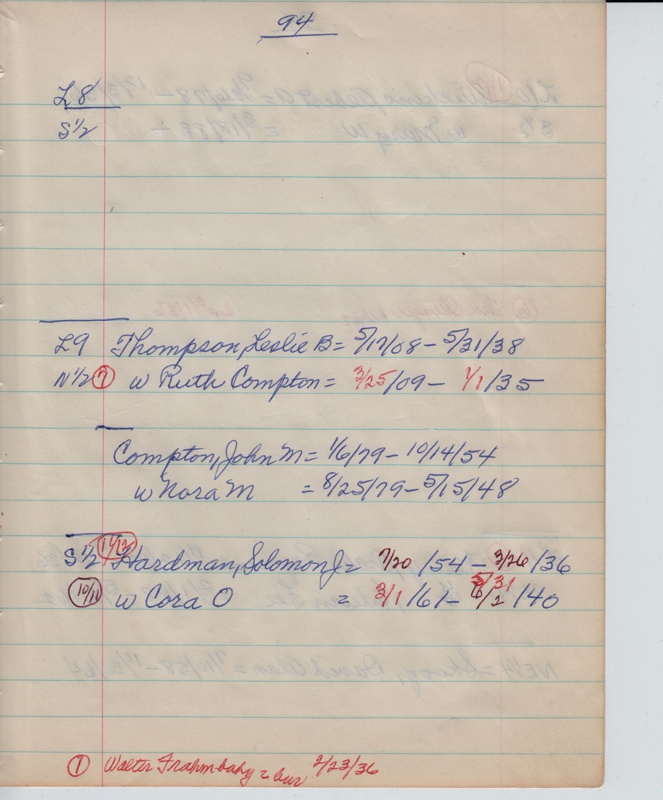 94
L8
S 1/2
L9 Thompson, Leslie B = 5/17/08 - 5/31/38
N 1/2 7 w Ruth Compton = 3/25/09 - 1/1/35
Compton, John M = 1/6/79 - 10/14/54
w Nora M = 8/25/79 - 5/15/48
S 1/2 11/12 Hardman, Solomon J = 7/20/54 - 3/26/36
5/31
10/11 w Cora O = 3/1/61 - 6/2/40
1 Walter Frahm - baby = bur 2/23/36